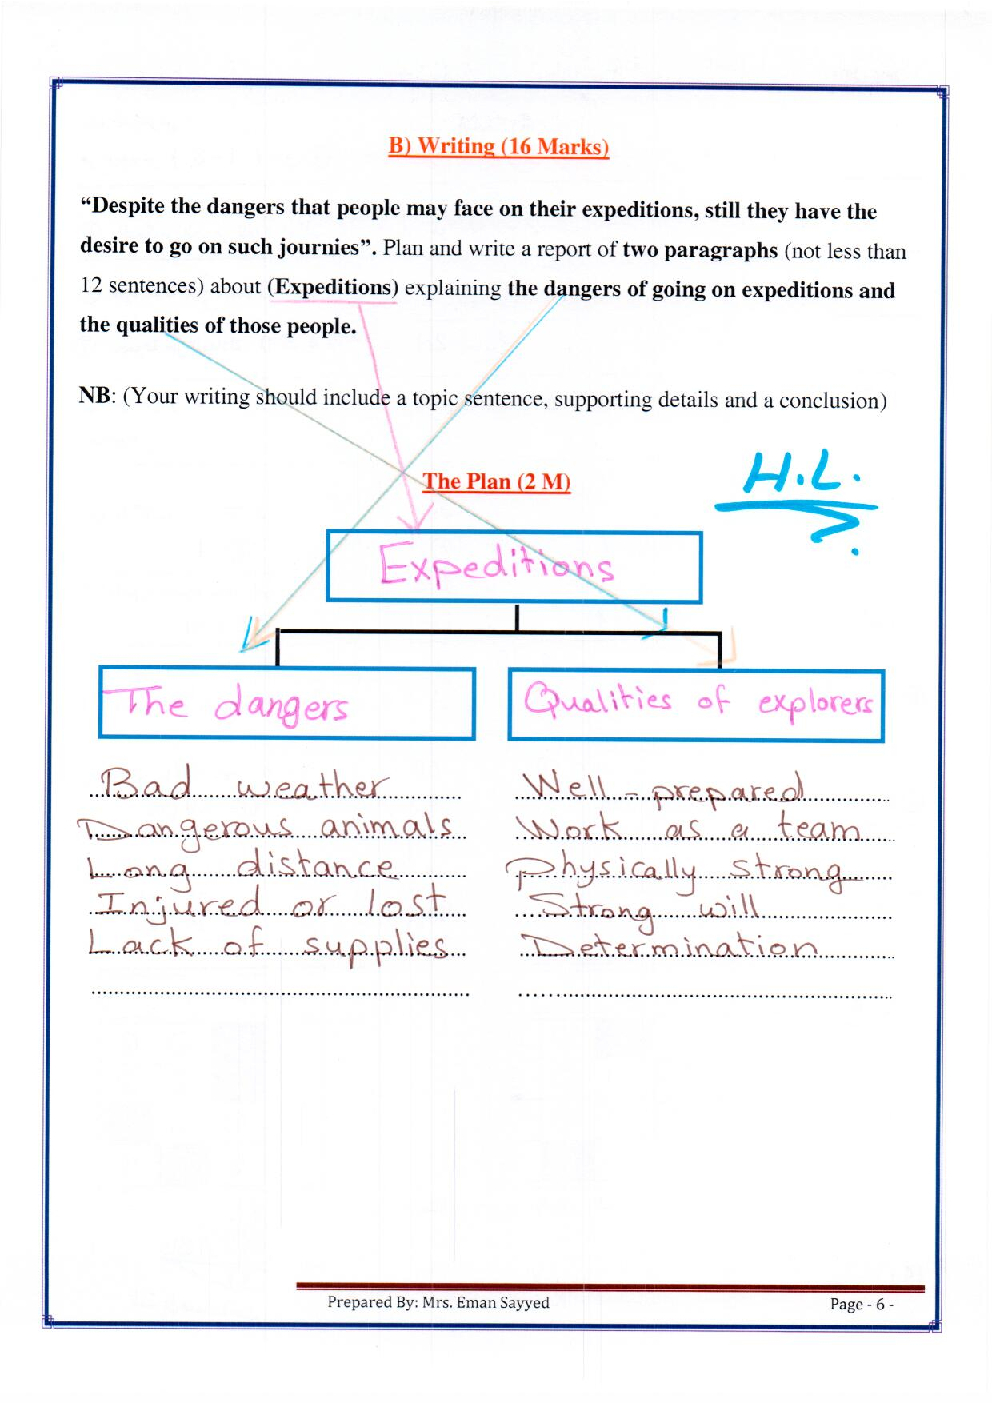 B) Writing (16 Marks)
“Despite the dangers that people may face on their expeditions, still they have the
desire to go on such journies”. Plan and write a report of two paragraphs (not less than
12 sentences) about (Expeditions) explaining the dangers of going on expeditions and
the qualities of those people.
NB: (Your writing should include a topic sentence, supporting details and a conclusion)
H.L.
The Plan (2 M)
Expeditions
The dangers
Qualities of explorers
Bad weather
Well - prepared
Dangerous animals
Work as a team
Long distance
Physically strong
Injured or lost
Strong will
Lack of supplies
Determination
Prepared By: Mrs. Eman Sayyed
Page - 6 -